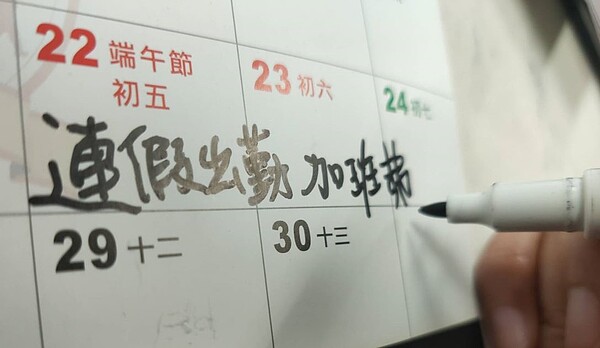 22 端午節
初五
23 初六
24 初七
連假出勤 加班
29 十二
30 十三